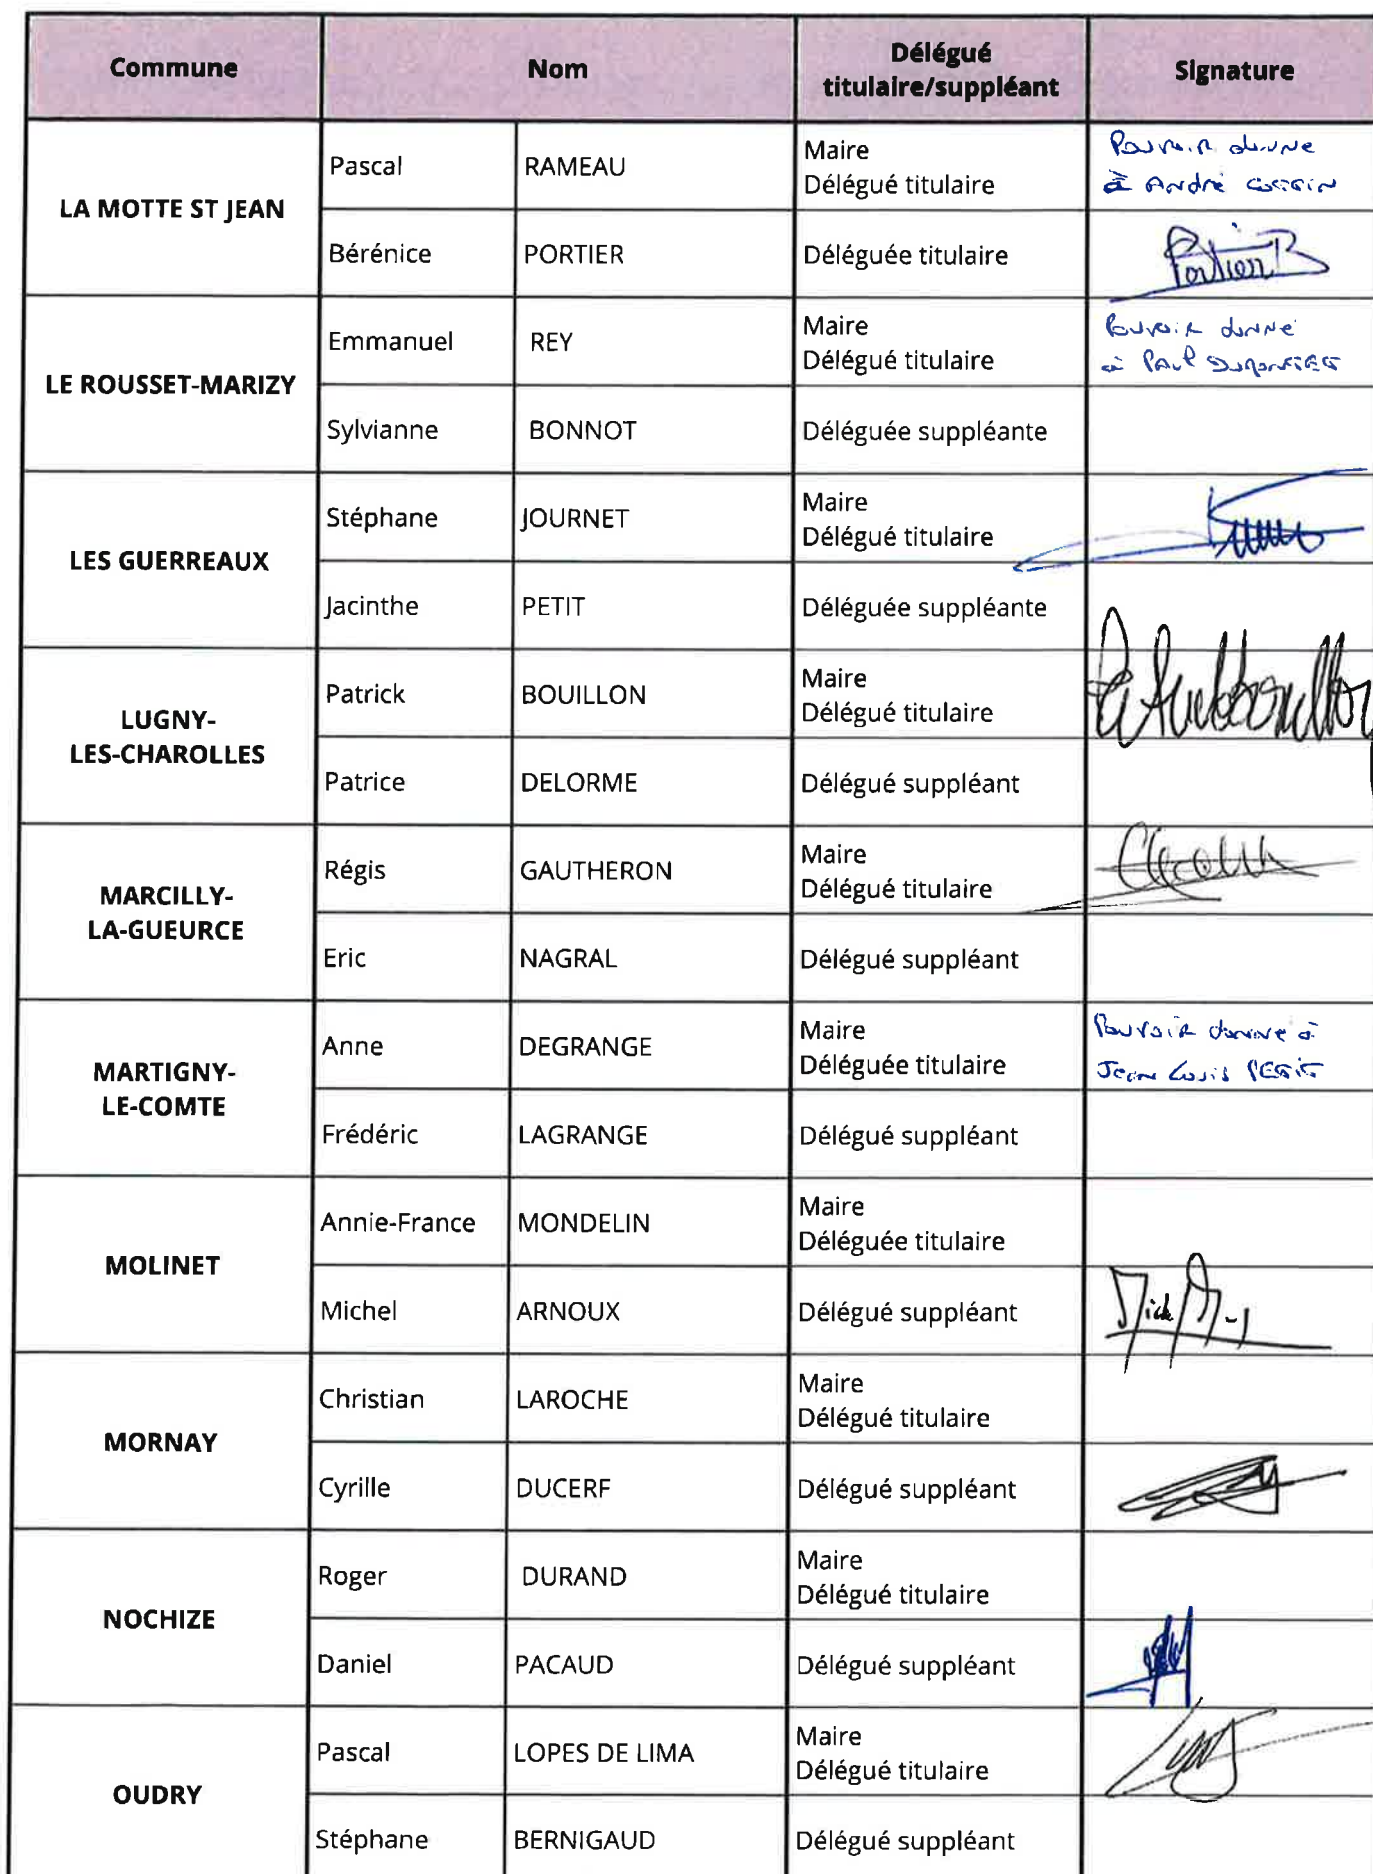 Commune
Nom
Délégué
titulaire/suppléant
Signature
LA MOTTE ST JEAN
Pascal
RAMEAU
Maire
Délégué titulaire
Pouvoir donne
à André
Bérénice
PORTIER
Déléguée titulaire
Portier B
LE ROUSSET-MARIZY
Emmanuel
REY
Maire
Délégué titulaire
Pouvoir donné
à Paul
Sylvianne
BONNOT
Déléguée suppléante
LES GUERREAUX
Stéphane
JOURNET
Maire
Délégué titulaire
Jacinthe
PETIT
Déléguée suppléante
LUGNY-
LES-CHAROLLES
Patrick
BOUILLON
Maire
Délégué titulaire
Patrice
DELORME
Délégué suppléant
MARCILLY-
LA-GUEURCE
Régis
GAUTHERON
Maire
Délégué titulaire
Eric
NAGRAL
Délégué suppléant
MARTIGNY-
LE-COMTE
Anne
DEGRANGE
Maire
Déléguée titulaire
Pouvoir donné à
Jean Louis PETIT
Frédéric
LAGRANGE
Délégué suppléant
MOLINET
Annie-France
MONDELIN
Maire
Déléguée titulaire
Michel
ARNOUX
Délégué suppléant
MORNAY
Christian
LAROCHE
Maire
Délégué titulaire
Cyrille
DUCERF
Délégué suppléant
NOCHIZE
Roger
DURAND
Maire
Délégué titulaire
Daniel
PACAUD
Délégué suppléant
OUDRY
Pascal
LOPES DE LIMA
Maire
Délégué titulaire
Stéphane
BERNIGAUD
Délégué suppléant